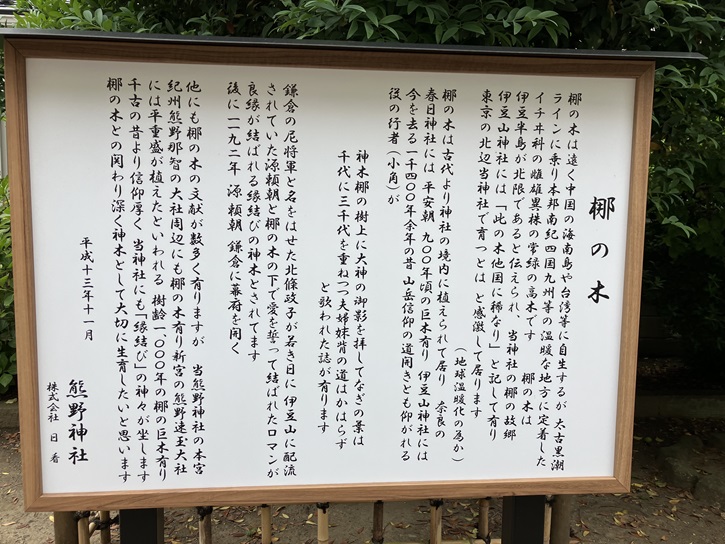 梛の木
梛の木は遠く中国の海南島や台湾等に自生するが 太古黒潮
ラインに乗り本邦南紀四国九州等の温暖な地方に定着した
イチヰ科の雌雄異株の常緑の高木です 梛の木は
伊豆半島が北限であると伝えられ 当神社の梛の故郷
伊豆山神社には「此の木他国に稀なり」と記して有り
東京の北辺当神社で育つとは と感激して居ります
(地球温暖化の為か)
梛の木は古代より神社の境内に植えられて居り 奈良の
春日神社には 平安朝 九〇〇年頃の巨木有り 伊豆山神社には
今を去る一千四〇〇年余年の昔 山岳信仰の道開きとも仰がれる
役の行者(小角)が
神木梛の樹上に大神の御影を拝してなぎの葉は
千代に三千代を重ねつつ夫婦妹背の道はかはらず
と歌われた誌が有ります
鎌倉の尼将軍と名をはせた北條政子が若き日に伊豆山に配流
されていた源頼朝と梛の木の下で愛を誓って結ばれたロマンが
良縁が結ばれる縁結びの神木とされてます
後に一一九二年 源頼朝 鎌倉に幕府を開く
他にも梛の木の文献が数多く有りますが 当熊野神社の本宮
紀州熊野那智の大社周辺にも梛の木有り新宮の熊野速玉大社
には平重盛が植えたといわれる 樹齢一、〇〇〇年の梛の巨木有り
千古の昔より信仰厚く 当神社にも「縁結び」の神々が坐します
梛の木との関わり深く神木として大切に生育したいと思います
平成十三年十一月
熊野神社
株式会社 日香